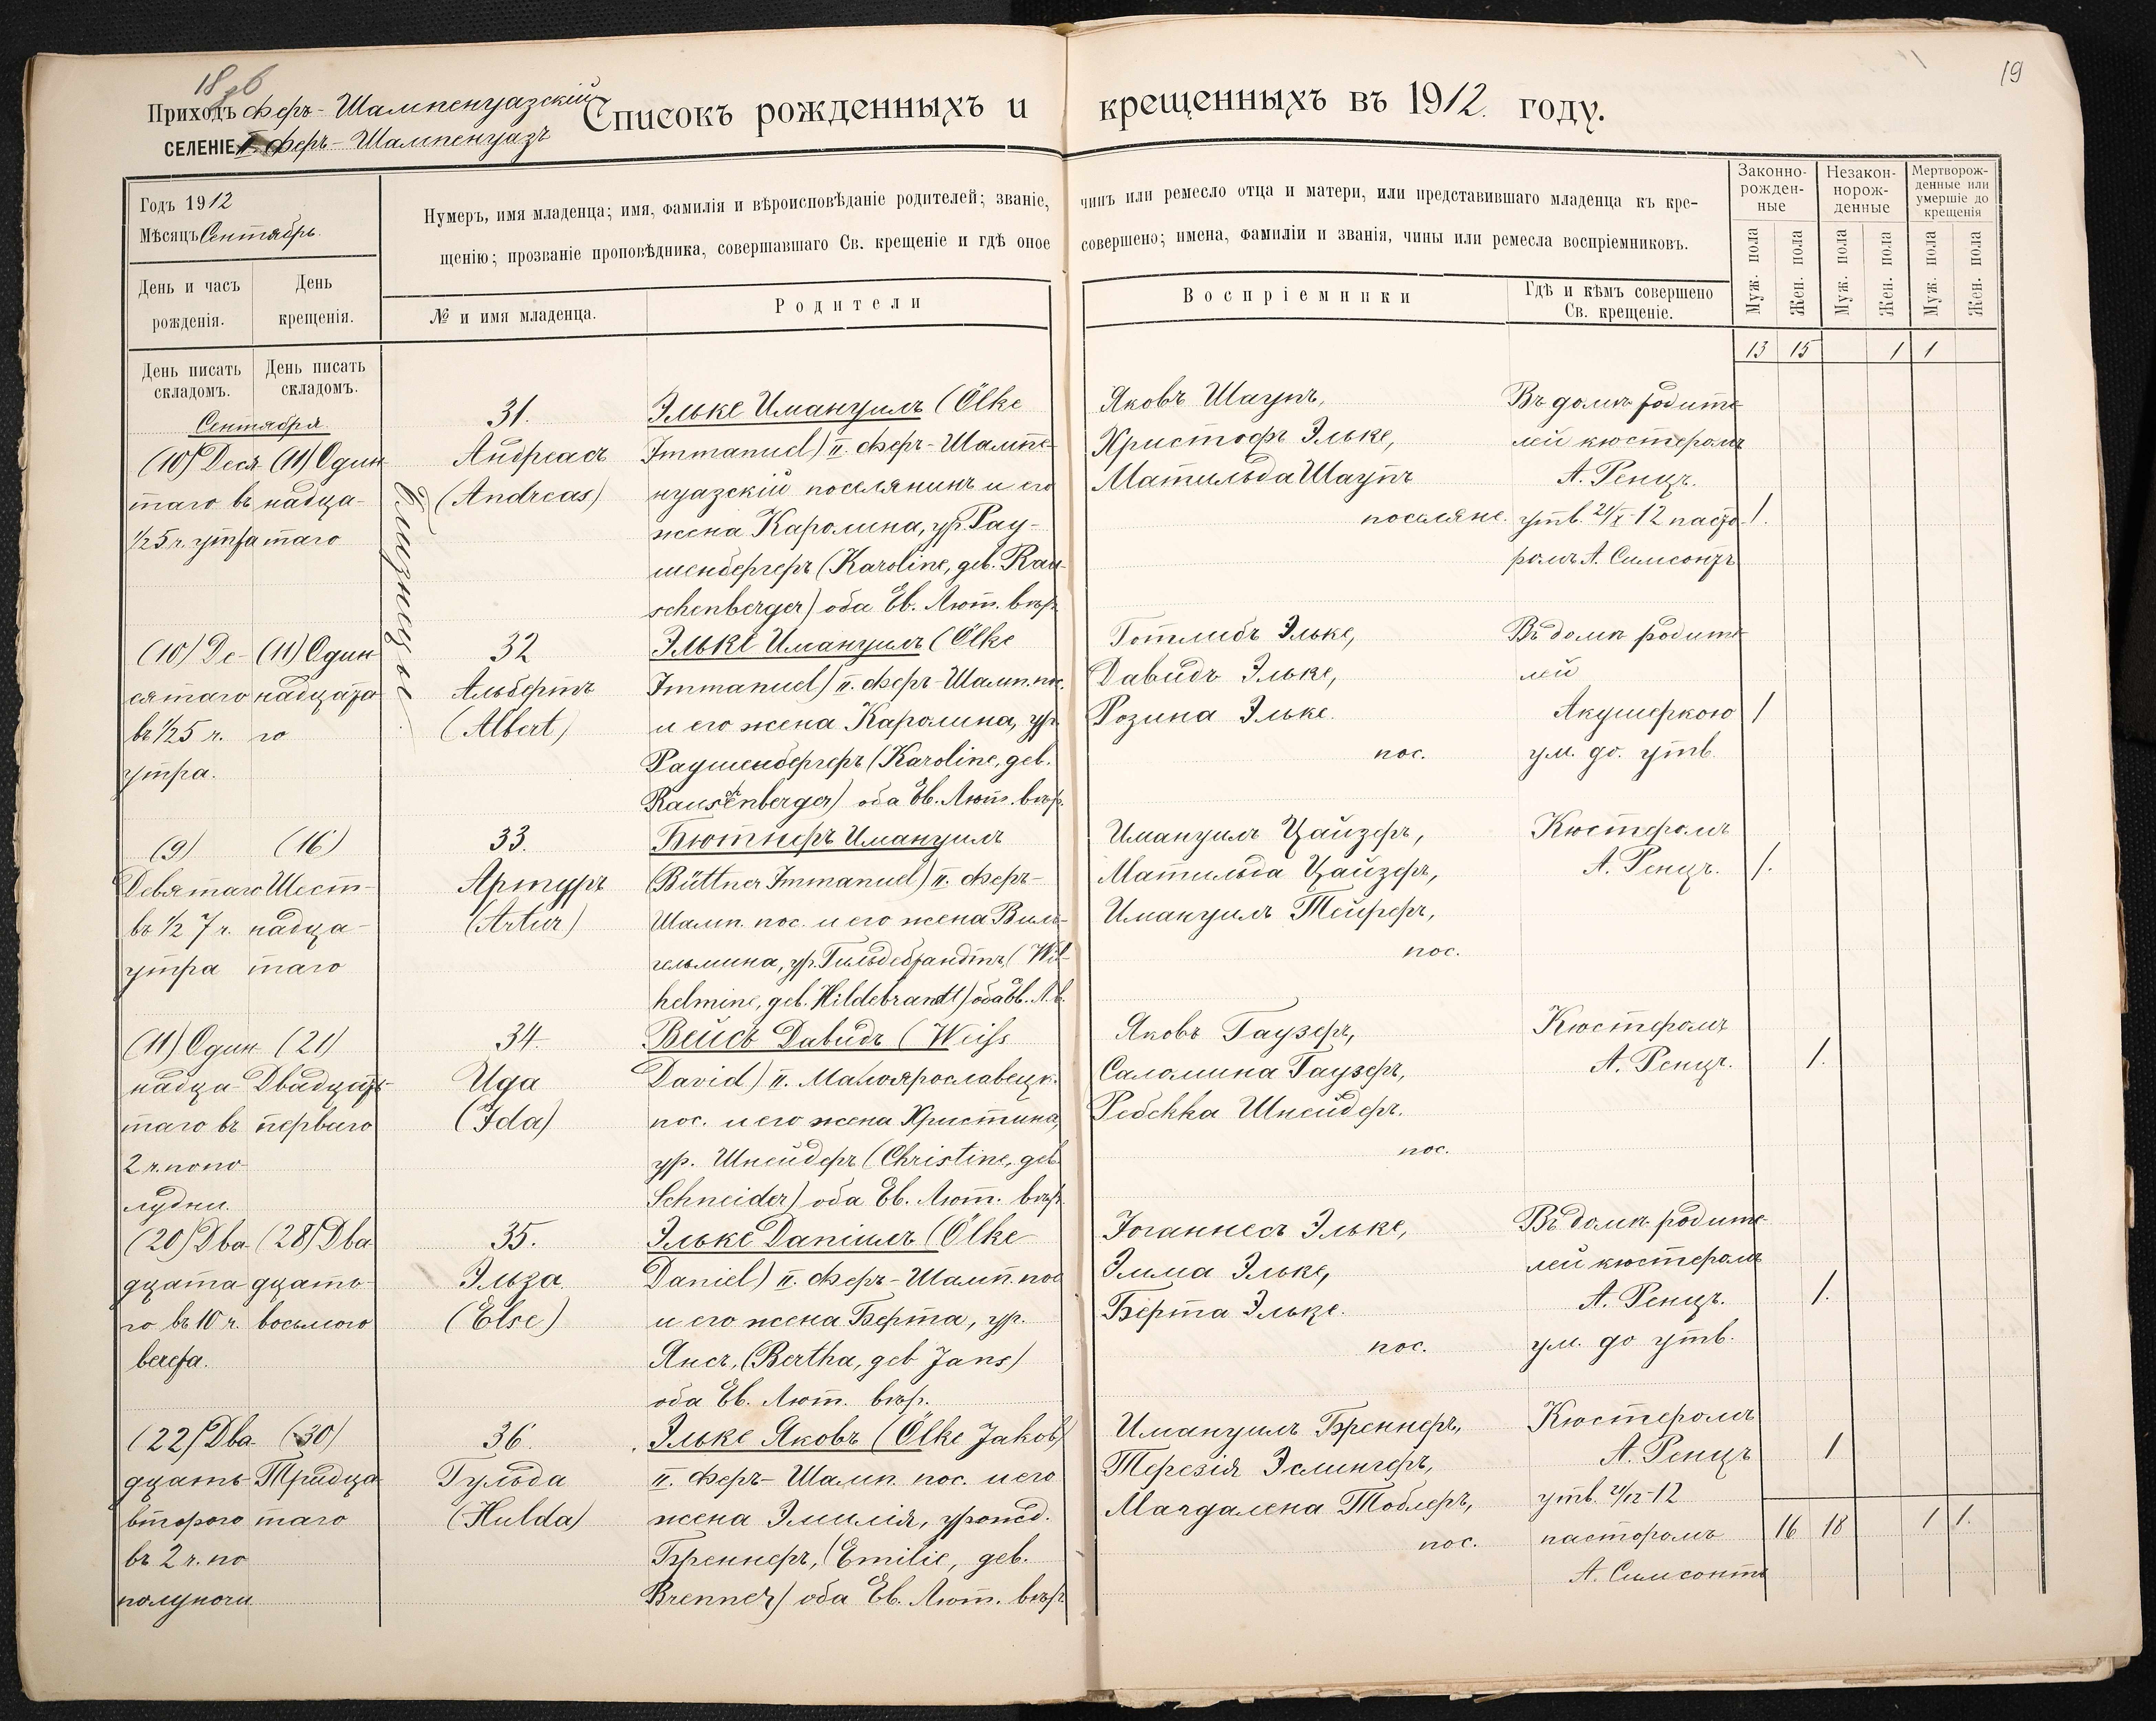 18 об
19
Приходъ Феръ-Шампенуазскій
СЕЛЕНІЕ II. Феръ-Шампенуазъ
Списокъ рожденныхъ и крещенныхъ въ 1912. году.
Годъ 1912
Мѣсяцъ Сентябрь.
Нумеръ, имя младенца; имя, фамилія и вѣроисповѣданіе родителей; званіе, чинъ или ремесло отца и матери, или представившаго младенца къ кре-
щенію; прозваніе проповѣдника, совершавшаго Св. крещеніе и гдѣ оное совершено; имена, фамиліи и званія, чины или ремесла воспріемниковъ.
Законно-
рожден-
ные
Незакон-
норож-
денные
Мертворож-
денные или
умершіе до
крещенія
День и часъ
рожденія.
День
крещенія.
№ и имя младенца.
Родители
Воспріемники
Гдѣ и кѣмъ совершено
Св. крещеніе.
Муж. пола
Жен. пола
Муж. пола
Жен. пола
Муж. пола
Жен. пола
День писать
складомъ.
День писать
складомъ.
13 15 1 1
Сентября.
(10) Деся-
таго въ
1/2 5 ч. утра
(11) Один
надца-
таго
Близнецы
31.
Андреасъ
(Andreas)
Эльке Имануилъ (Ölke
Immanuel) II. Феръ-Шампе-
нуазскій поселянинъ и его
жена Каролина, ур. Рау-
шенбергеръ (Karoline, geb. Rau-
schenberger) оба Ев. Лют. вѣр.
Яковъ Шаупъ,
Христофъ Эльке,
Матильда Шаупъ
поселяне.
Въ домѣ родите
лей кюстеромъ
А. Ренцъ.
утв. 21/X-12 пасто-
ромъ А. Симсонъ
1.
(10) Де-
сятаго
въ 1/2 5 ч.
утра.
(11) Один
надцата
го
32
Альбертъ
(Albert)
Эльке Имануилъ (Ölke
Immanuel) II. Феръ-Шамп. пос.
и его жена Каролина, ур.
Раушенбергеръ (Karoline, geb.
Rauschenberger) оба Ев. Лют. вѣр.
Готлибъ Эльке,
Давидъ Эльке,
Розина Эльке.
пос.
Въ домѣ родите
лей
Акушеркою
ум. до. утв.
1
(9)
Девятаго
въ 1/2 7 ч.
утра
(16)
Шест-
надца-
таго
33.
Артуръ
(Artur)
Бютнеръ Имануилъ
(Büttner Immanuel) II. Феръ-
Шамп. пос. и его жена Виль-
гельмина, ур. Гильдебрандтъ, (Wil-
helmine, geb. Hildebrandt) оба Ев. Л. в.
Имануилъ Цайзеръ,
Матильда Цайзеръ,
Имануилъ Тейреръ,
пос.
Кюстеромъ
А. Ренцъ.
1.
(11) Один
надца-
таго въ
2 ч. попо-
лудни.
(21)
Двадцать
перваго
34.
Ида
(Ida)
Вейсъ Давидъ (Weiss
David) II. Малоярославецк.
пос. и его жена Христина,
ур. Шнейдеръ (Christine, geb.
Schneider) оба Ев. Лют. вѣр.
Яковъ Гаузеръ,
Саломина Гаузеръ,
Ребекка Шнейдеръ.
пос.
Кюстеромъ
А. Ренцъ.
1.
(20) Два-
дцата-
го въ 10 ч.
вечера.
(28) Два
дцать
восьмого
35.
Эльза
(Else)
Эльке Даніилъ (Ölke
Daniel) II. Феръ-Шамп. пос
и его жена Берта, ур.
Янсъ, (Bertha, geb Jans)
оба Ев. Лют. вѣр.
Іоганнесъ Эльке,
Эмма Эльке,
Берта Эльке.
пос.
Въ домѣ родите
лей кюстеромъ
А. Ренцъ.
ум. до утв.
1.
(22) Два-
дцать
второго
въ 2 ч. по
полуночи
(30)
Тридца
таго
36.
Гульда
(Hulda)
Эльке Яковъ (Ölke Jakob)
II. Феръ-Шамп. пос. и его
жена Эмилія, урожд.
Бреннеръ, (Emilie, geb.
Brenner) оба Ев. Лют. вѣр.
Имануилъ Бреннеръ,
Терезія Эслингеръ,
Магдалена Тоблеръ,
пос.
Кюстеромъ
А. Ренцъ
утв. 21/12-12
пасторомъ
А. Симсонъ
1
16 18 1 1.